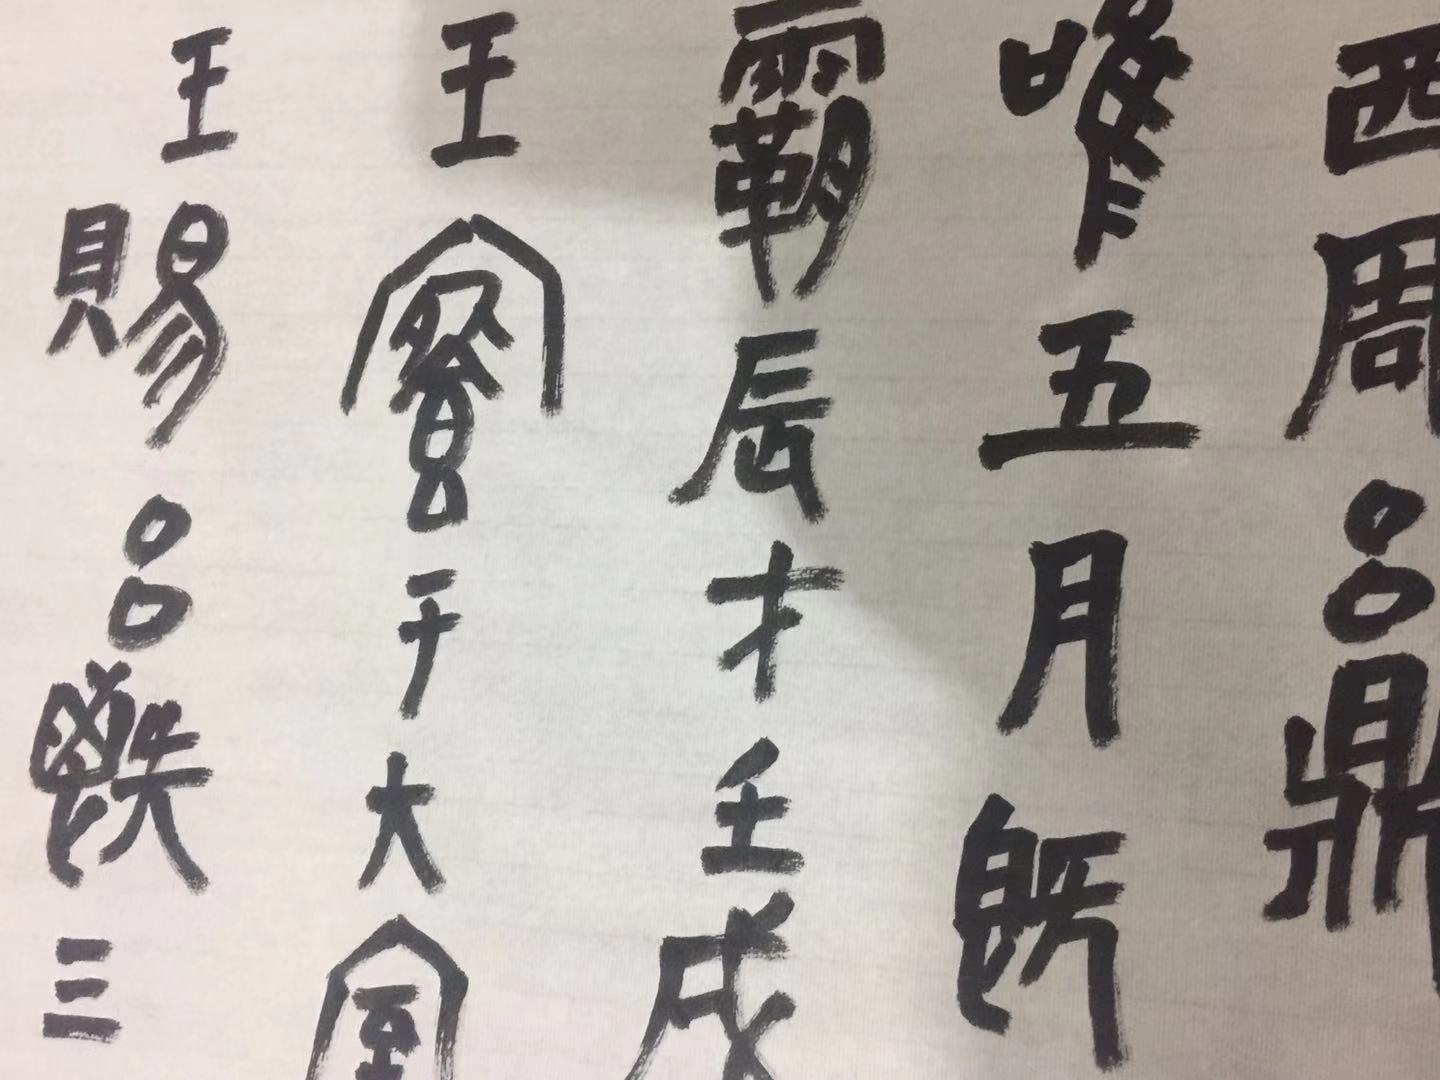 西周吕鼎
唯五月既
霸辰才壬戌
王于大室
王賜吕三